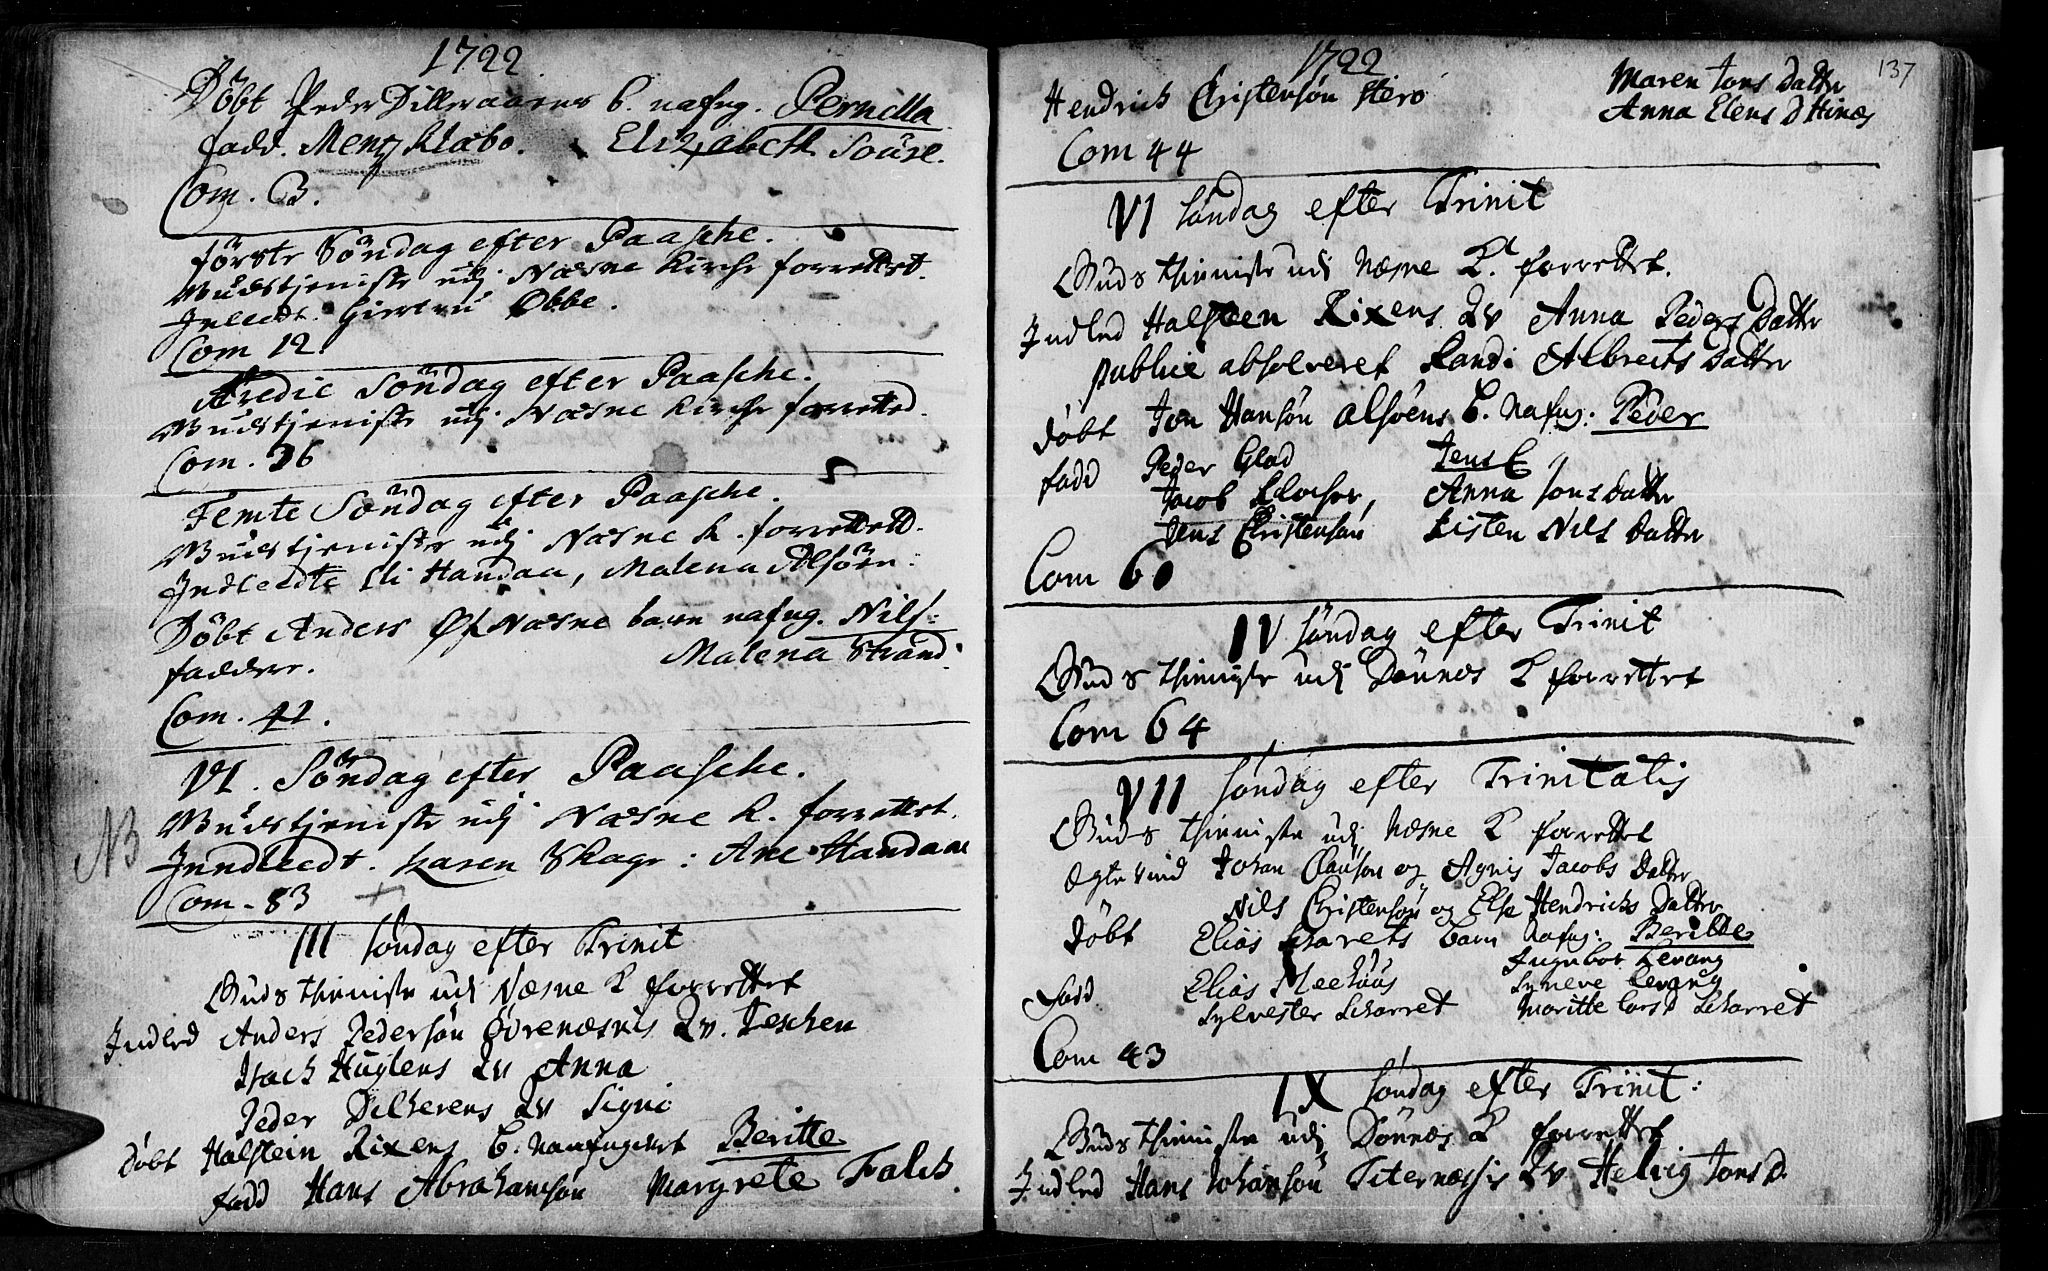 1722
Döbt Peder Dilleraaens b. nafng. Pernilla
fadd. Mentz Klæbo. Elizabeth Souse.
Com. B.
förste Söndag efter Paasche.
Gudstjeniste udj Næsne Kirche forrettet.
Inledt. Giertru Ebbe.
Com 12
Tredie Söndag efter Paasche.
Gudstjeniste udj Næsne Kirche forretted.
Com. 36
Femte Söndag efter Paasche.
Gudstjeniste udj Næsne K. forrettett.
Indleedte Eli Handaa, Malena Alsöen:
Döbt Anders Næsne barn nafng. Nils:
faddere. Malena Strand
Com. 42.
VI. Söndag efter Paasche.
Gudstjeniste udj Næsne K. forrettet.
NB
Inndleedt. Karen Skage: Ane Handaae
Com. 83
III söndag efter Trinit
Guds thieniste udj Næsne K forrettet
Indled Anders Pedersön Övrenæsnis Qv. Leschen
Isach Huglens Qv Anna
Peder Dilkerens Qv Signi
Döbt Halstein Rixens B. naufngivet Beritte
fadd Hans Abrahamsön Margrete Falch.
1722
137
Hendrich Christensön Herö Maren Jons Datter
Anna Elens D Hinæs
Com 44
VI söndag efter Trinit
Guds thieniste udj Næsne K. forrettet.
Indled Halsteen Rixens Qv Anna Peders Datter
publice absolveret Randi Albreits Datter
döbt Jon Hansön Alsöens B. nafng: Peder
fadd Peder Glad Jens C
Jacob Klocher, Anna Jonsdatter
Jens Christensön Kisten Nils Datter
Com 60
IV söndag efter Trinit
Guds thieniste udj Dönnes K forrettet
Com 64
VII söndag efter Trinitatis
Guds thieniste udj Næsne K forrettet
Ægte vied Johan Clausön og Agnis Jacobs Datter
Nils Christensön og Else Hendrichs Datter
Döbt Elias Scharets barn nafng: Beritte
Ingebor Levang
Fadd Elias Meehuus Syneve Levang
Sylvester Scharret Maritte Lars D Scharret
Com 43
IX söndag efter Trinit:
Guds thieniste udj Dönnæs K forrettet
Indled Hans Johansön Titernæssis Qv Helvig Jons D.